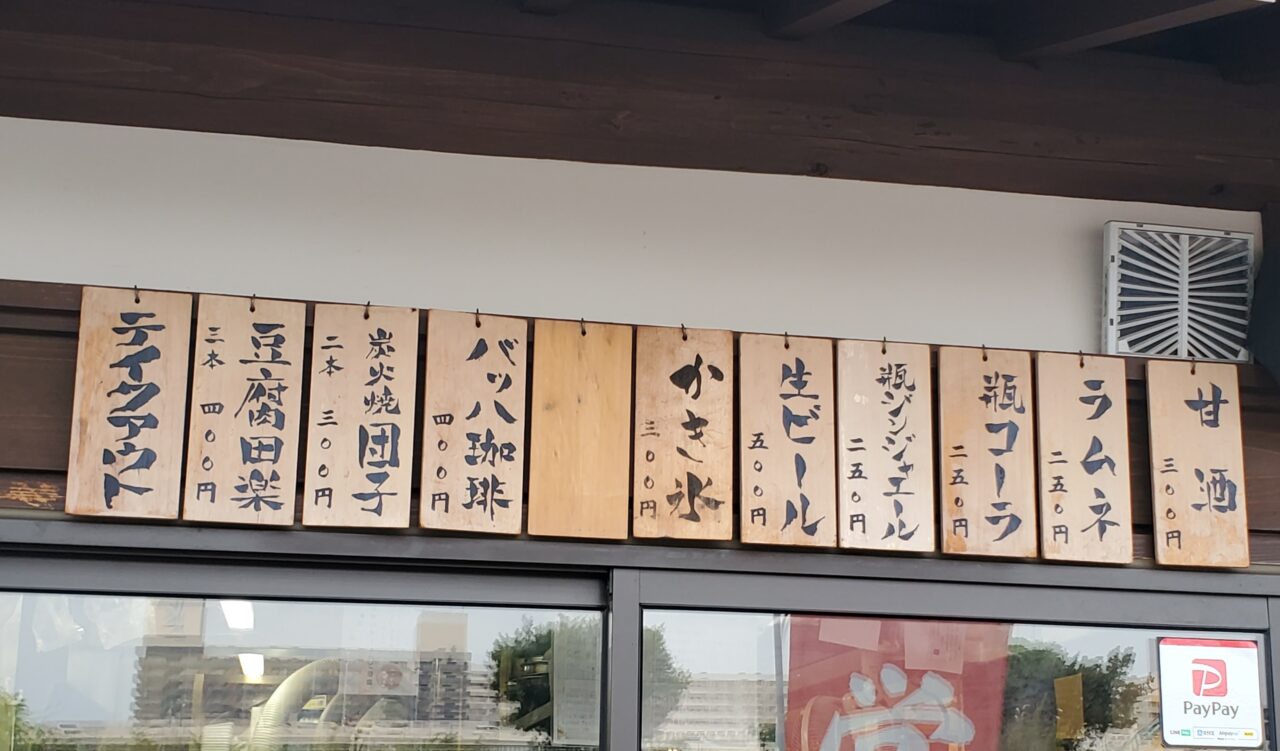 甘酒
三〇〇円
ラムネ
二五〇円
瓶コーラ
二五〇円
瓶ジンジャエール
二五〇円
生ビール
五〇〇円
かき氷
三〇〇円
バッハ珈琲
四〇〇円
炭火焼団子
二本 三〇〇円
豆腐田楽
三本 四〇〇円
テイクアウト
PayPay